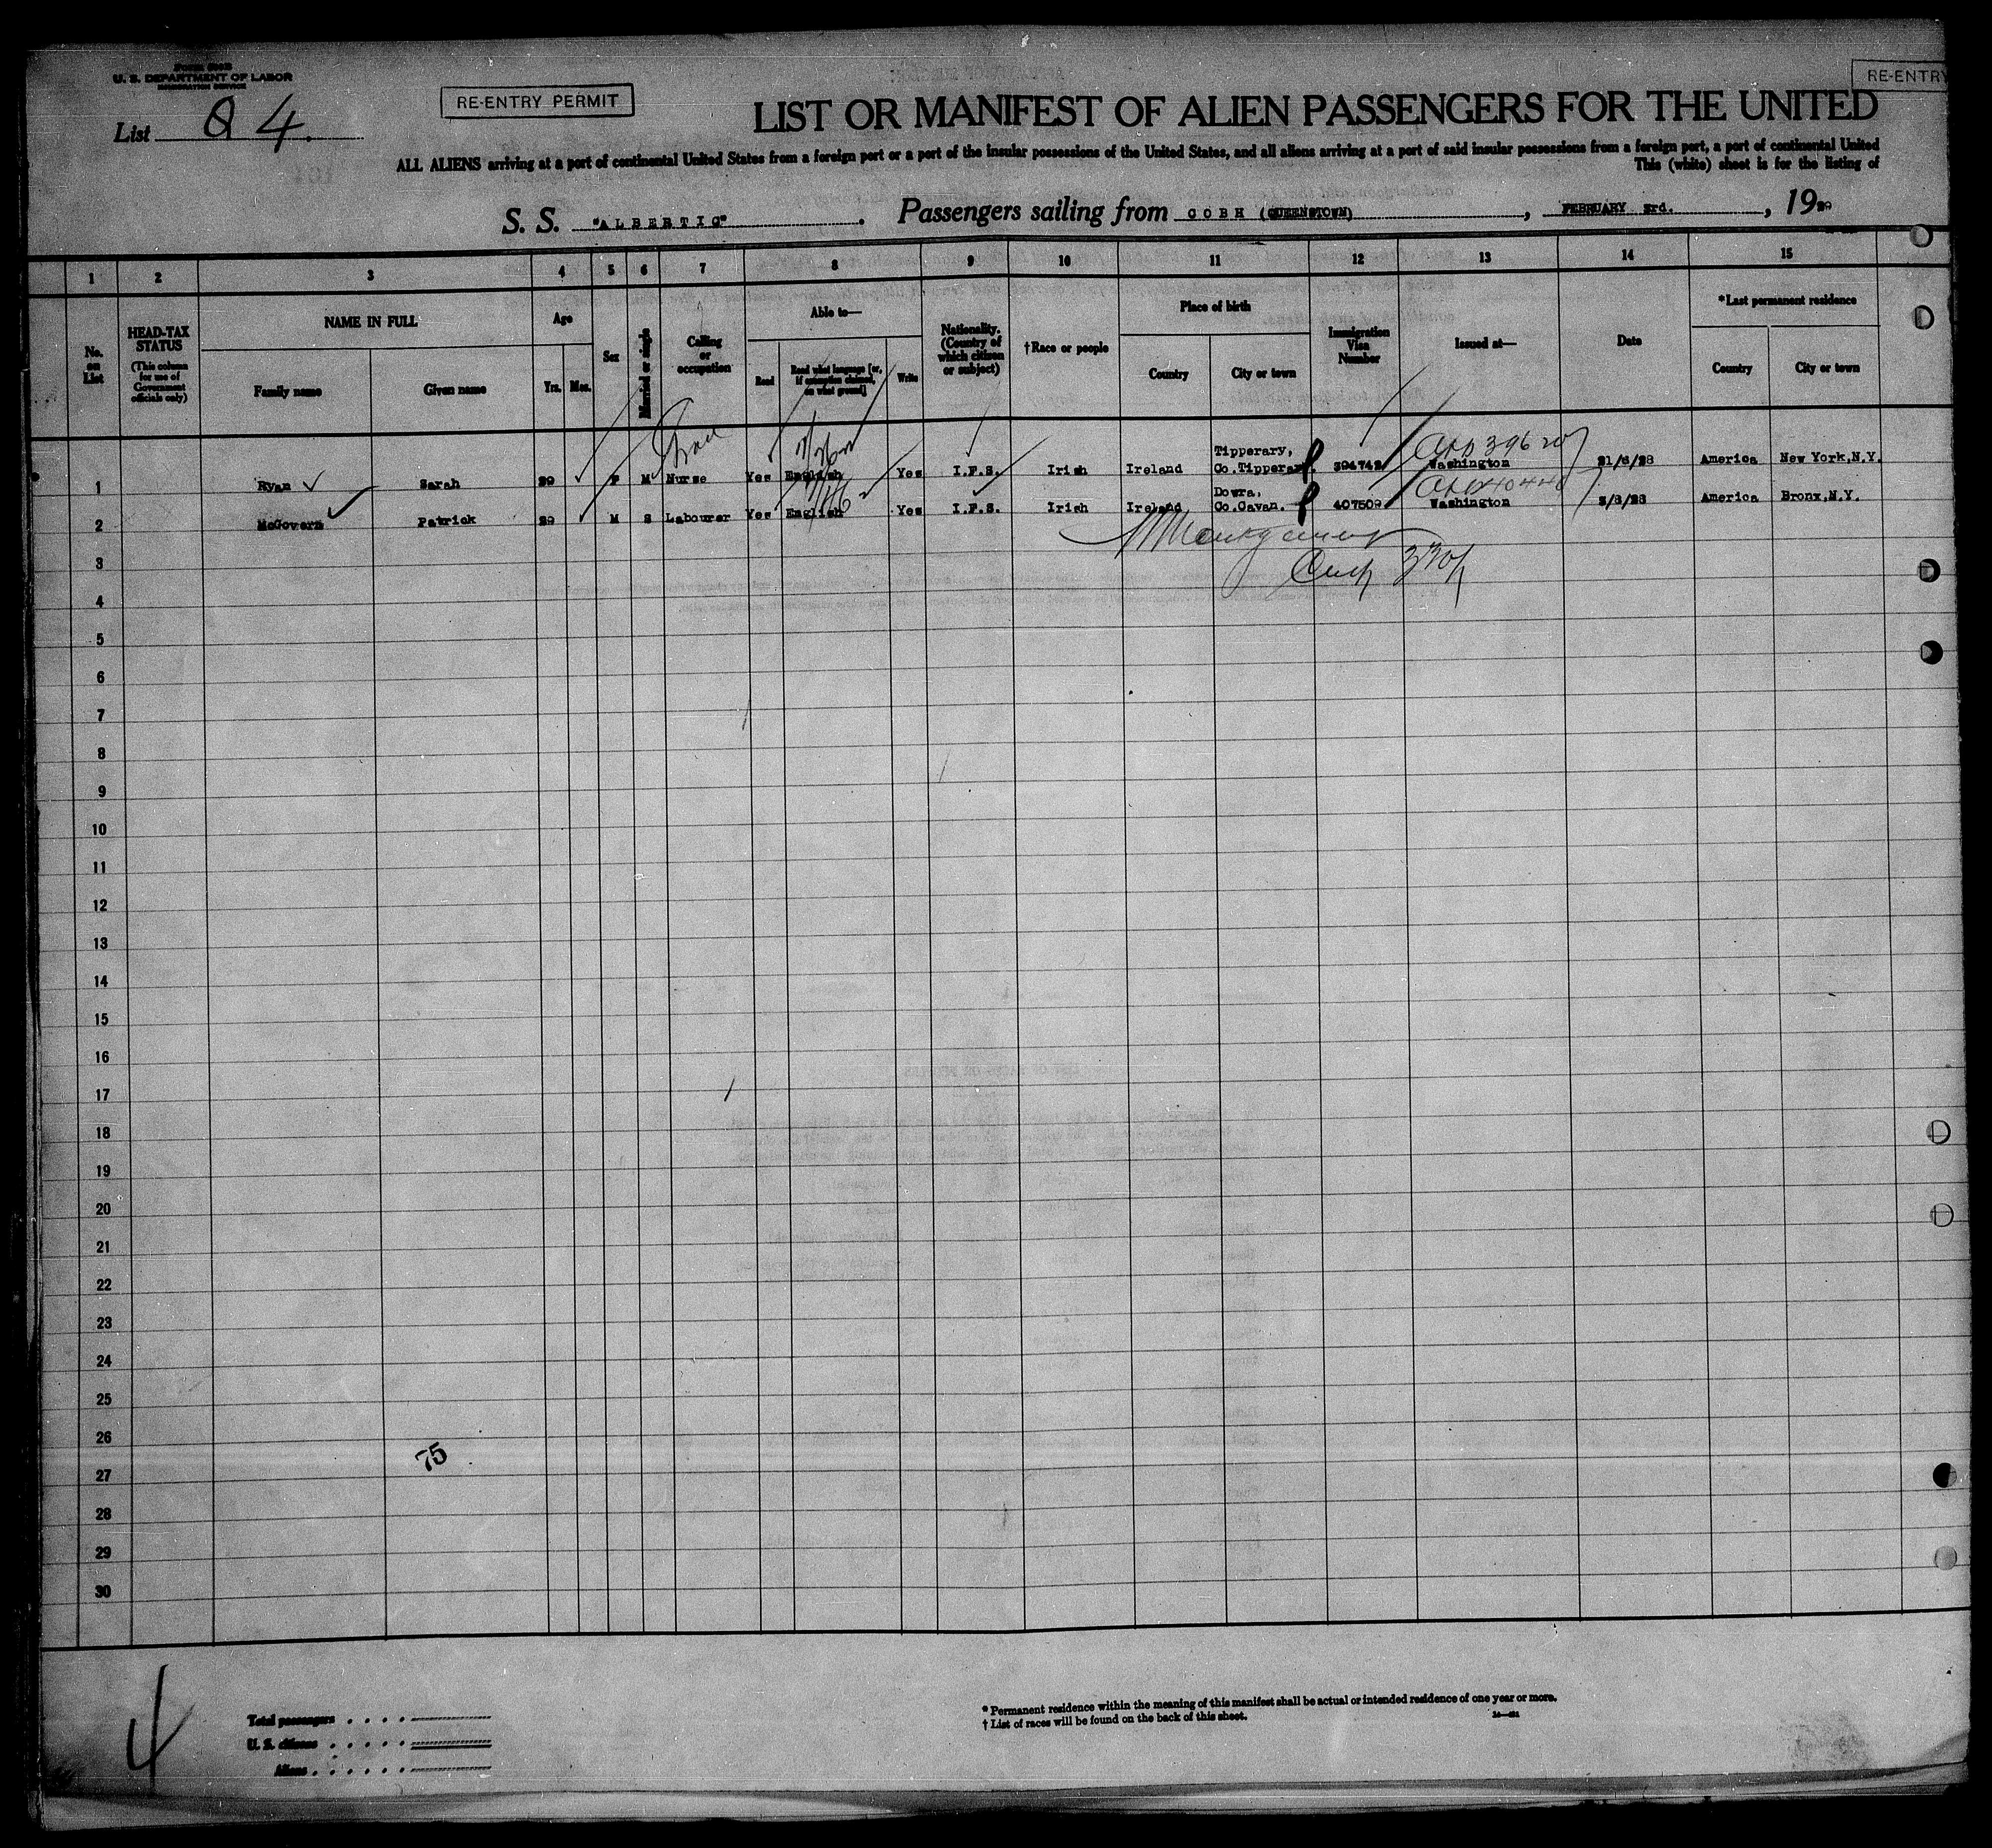 U. S. DEPARTMENT OF LABOR
IMMIGRATION SERVICE
List 4.
RE-ENTRY PERMIT
RE-ENTRY
LIST OR MANIFEST OF ALIEN PASSENGERS FOR THE UNITED
ALL ALIENS arriving at a port of continental United States from a foreign port or a port of the insular possessions of the United States, and all aliens arriving at a port of said insular possessions from a foreign port, a port of continental United
This (white) sheet is for the listing of
S. S. "ALBERTIC". Passengers sailing from COBH (QUEENSTOWN), FEBRUARY 3rd., 19
1 2 3 4 5 6 7 8 9 10 11 12 13 14 15
No. on List
HEAD-TAX STATUS (This column for use of Government officials only)
NAME IN FULL
Family name
Given name
Age
Yrs. Mos.
Sex
Married or single
Calling or occupation
Able to—
Read
Read what language [or, if exemption claimed, on what ground]
Write
Nationality. (Country of which citizen or subject)
†Race or people
Place of birth
Country
City or town
Immigration Visa Number
Issued at—
Date
*Last permanent residence
Country
City or town
1 Ryan Sarah 29 F M Nurse Yes English Yes I.F.S. Irish Ireland Tipperary, Co.Tipperary. 394742 Washington 21/6/28 America New York,N.Y.
2 McGovern Patrick 29 M S Labourer Yes English Yes I.F.S. Irish Ireland Dowra, Co.Cavan. 407509 Washington America Bronx,N.Y.
3
4
5
6
7
8
9
10
11
12
13
14
15
16
17
18
19
20
21
22
23
24
25
26
27
28
29
30
75
4
Total passengers
U. S. citizens
Aliens
* Permanent residence within the meaning of this manifest shall be actual or intended residence of one year or more.
† List of races will be found on the back of this sheet.